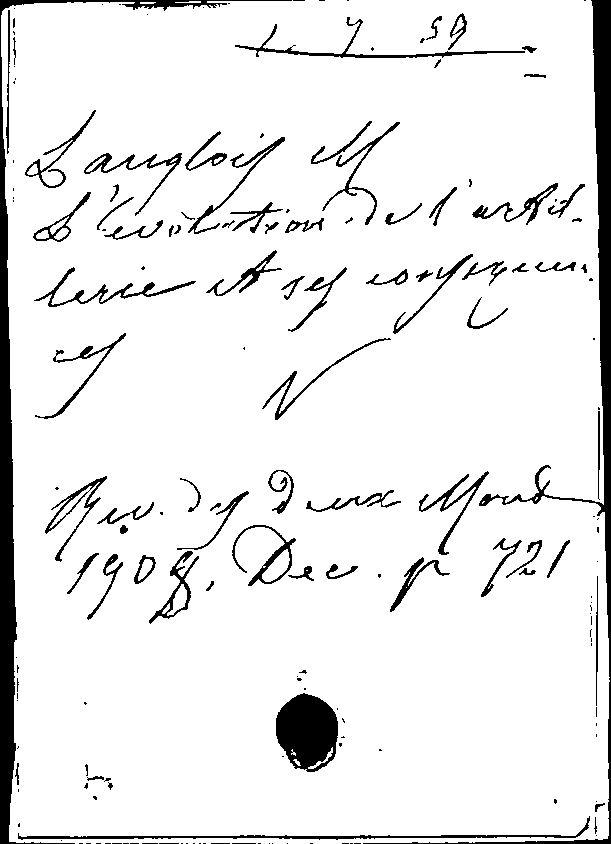 1. 7. 59
Langlois M
L'évolution de l'artil-
lerie et ses consequen-
ces
Rev. des Deux Mond
1908. Dec. p 721